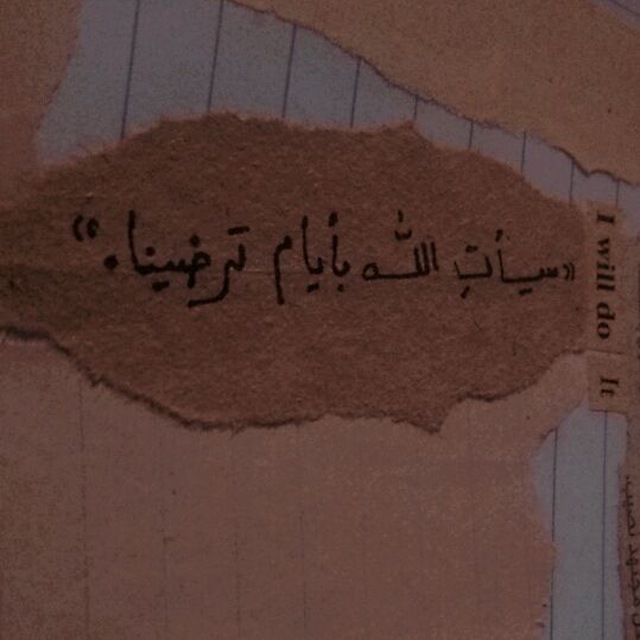 «سيأتِ الله بأيام ترضينا.»
I will do It